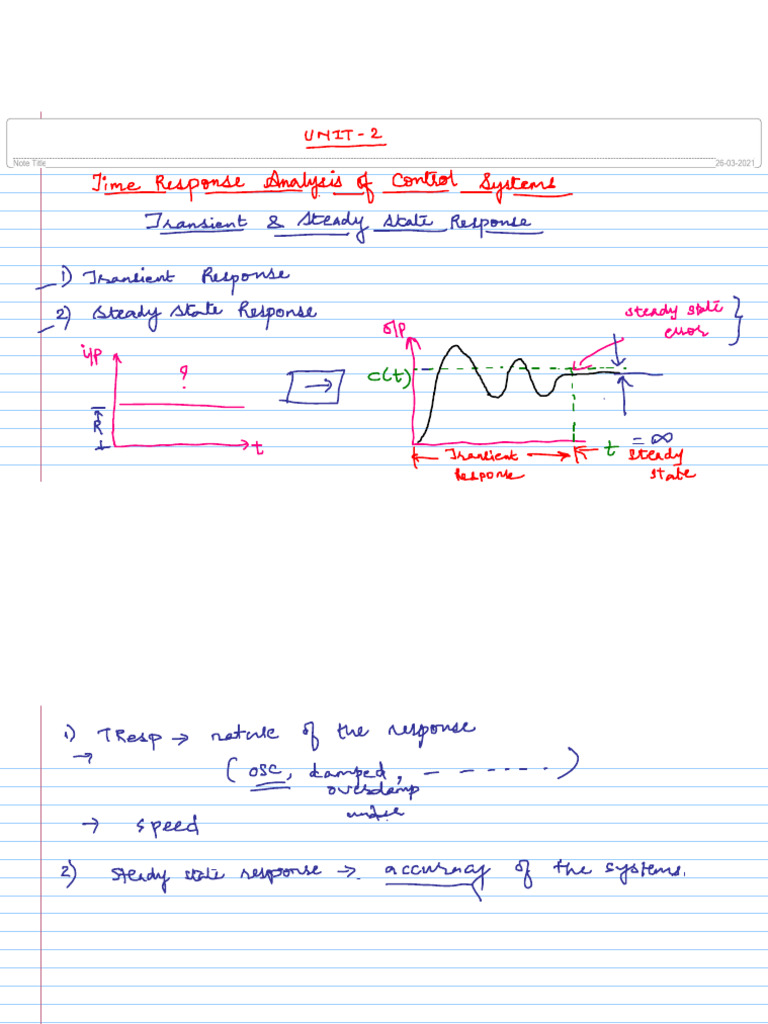 UNIT-2
Note Title
26-03-2021
Time Response Analysis of Control Systems
Transient & Steady State Response
1) Transient Response
2) Steady State Response
steady state
error
i/p
?
R
t
o/p
c(t)
t = ∞
Transient
Response
Steady
State
1) TResp → nature of the response
→ (osc, damped, - - - - - - -)
overdamp
under
→ speed
2) Steady state response → accuracy of the systems.